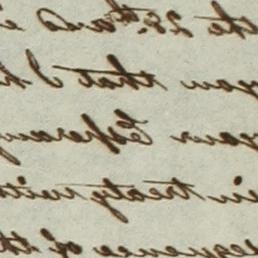 the 28th and
you that I h
your Esperan
in treaty with
sequence of th